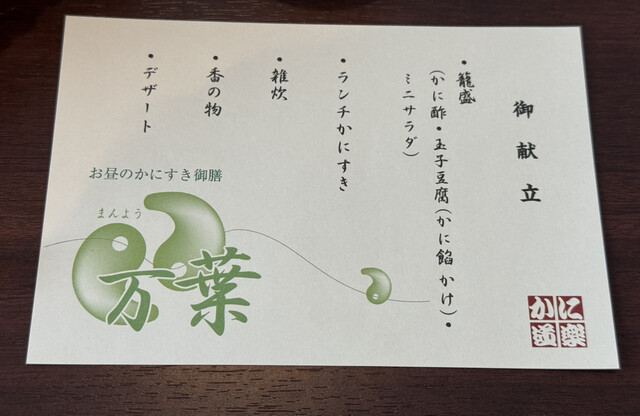 御献立
・籠盛
(かに酢・玉子豆腐(かに餡かけ)・
ミニサラダ)
・ランチかにすき
・雑炊
・香の物
・デザート
お昼のかにすき御膳
まんよう
万葉
かに
道楽